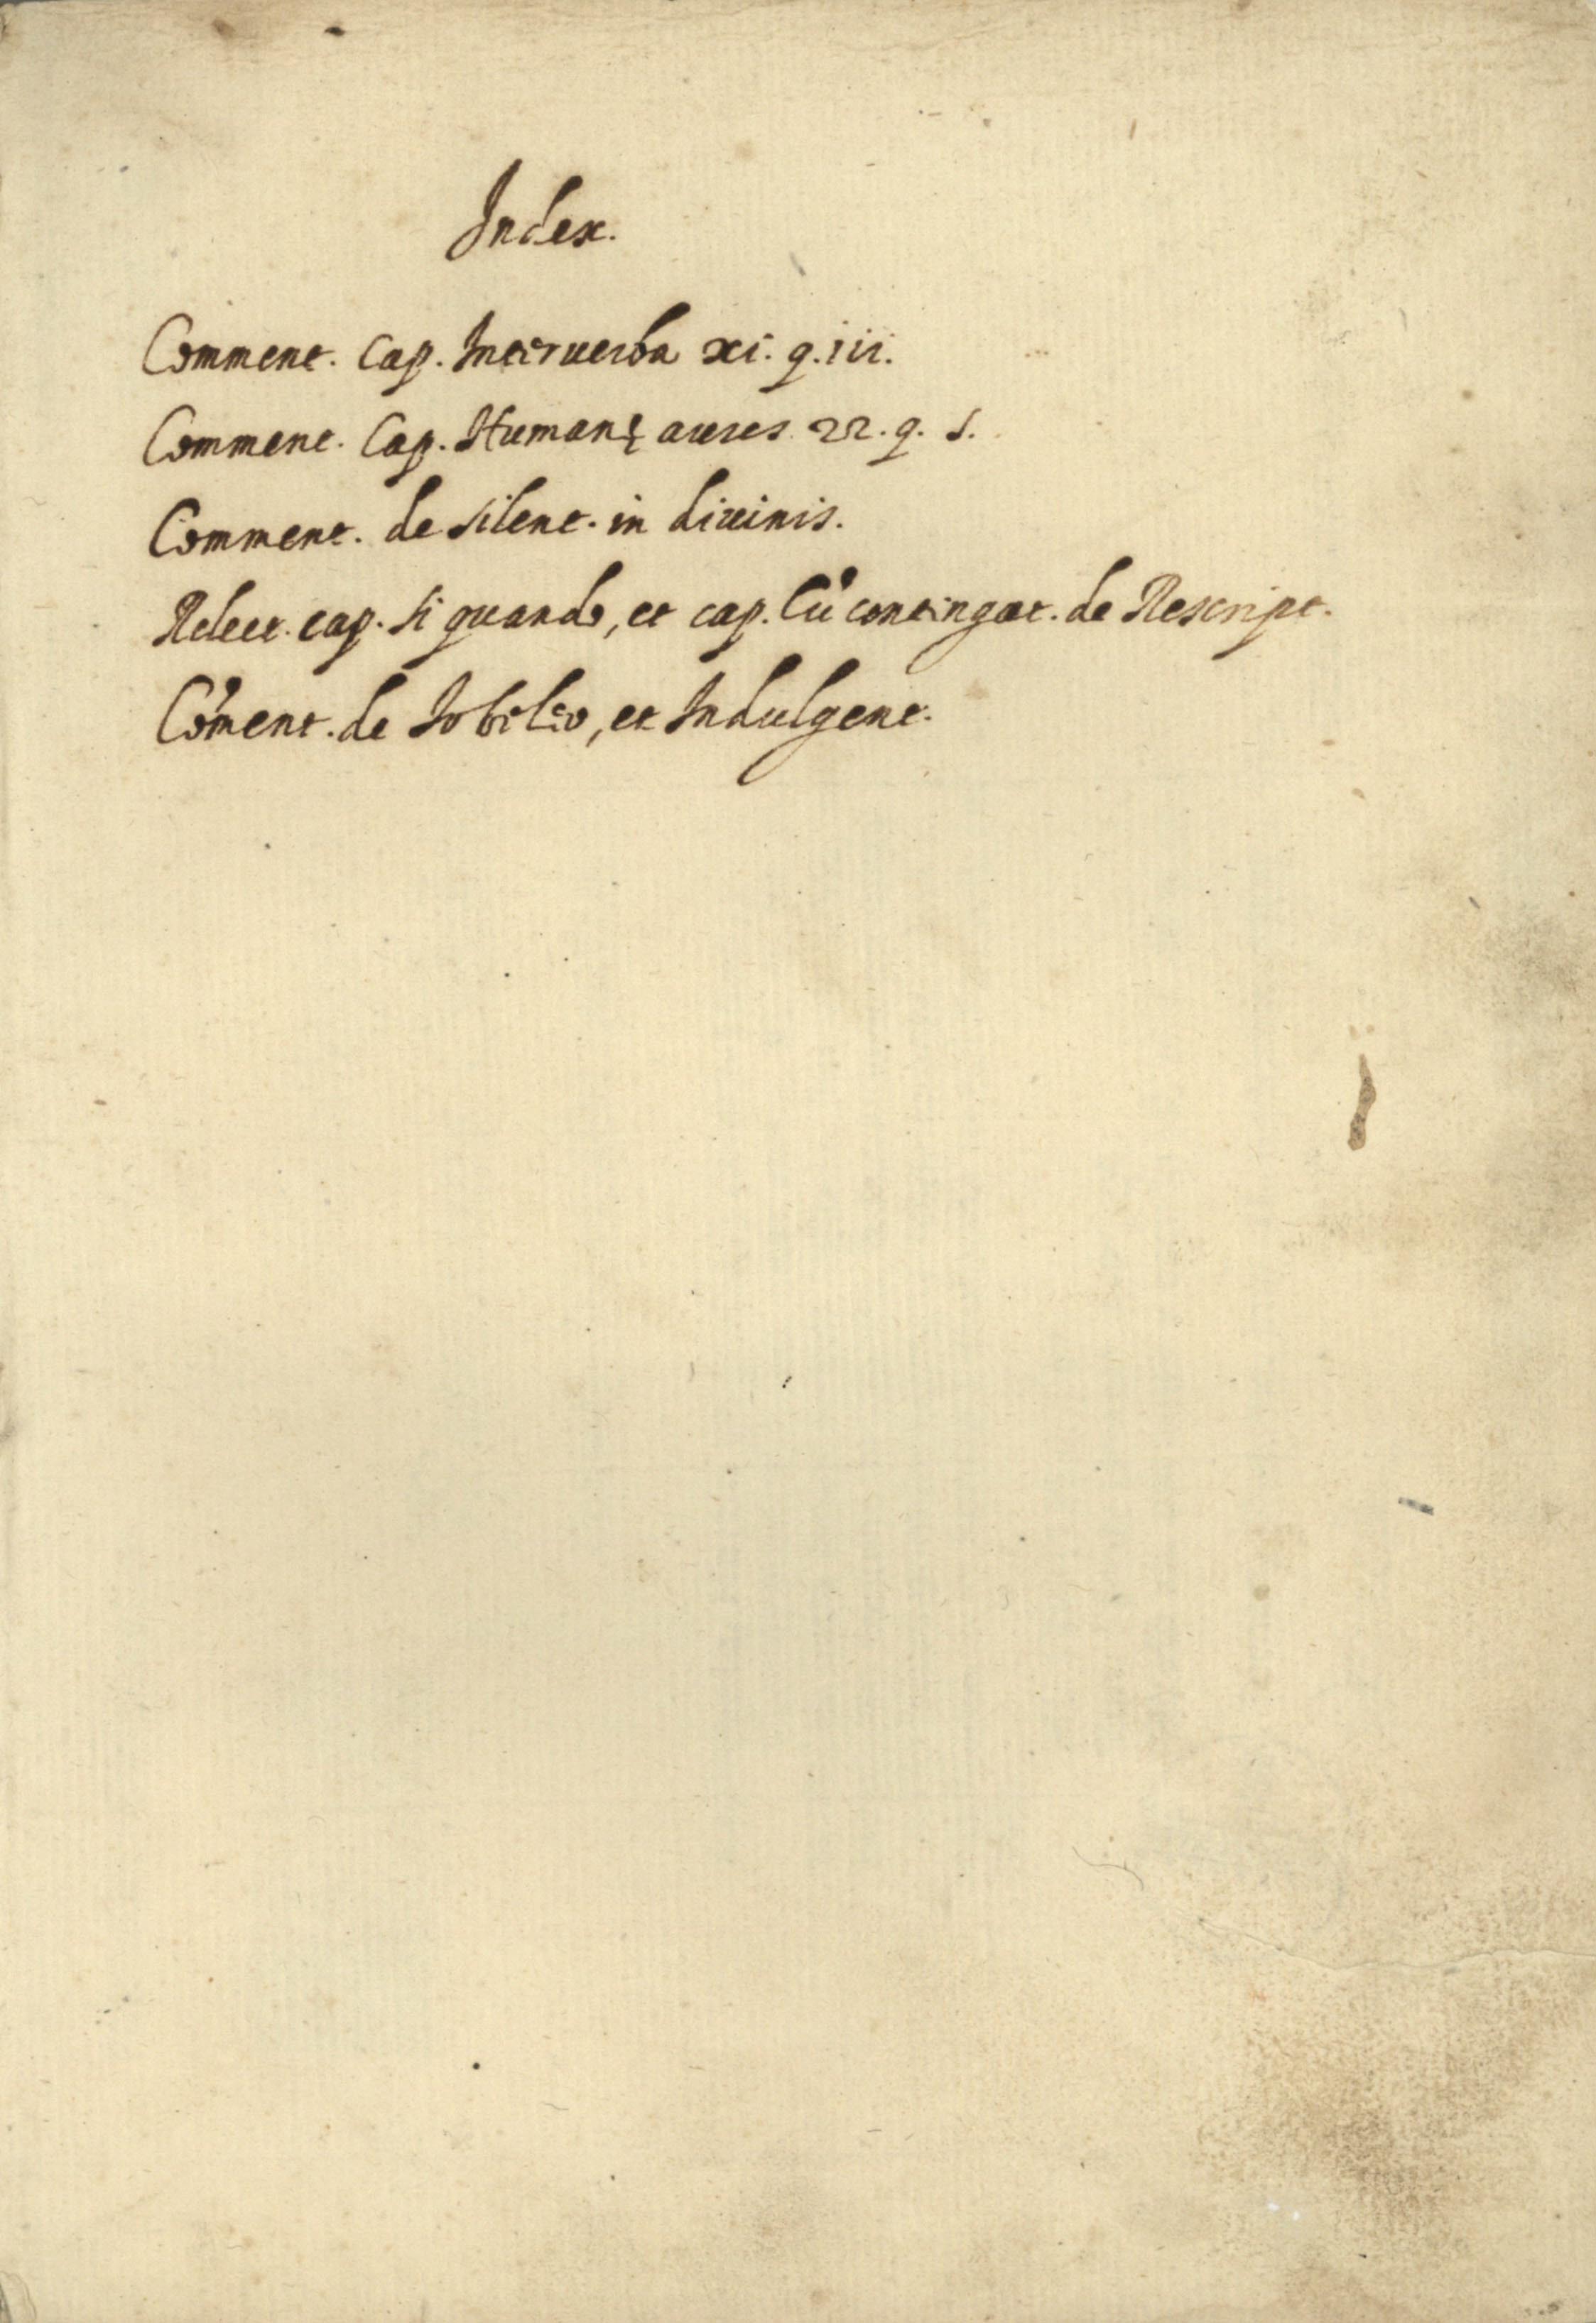 Index.
Comment. Cap. Inter uerba xi. q. iii.
Comment. Cap. Humanę aures 22. q. 5.
Comment. de silent. in diuinis.
Relect. cap. Si quando, et cap. Cũ contingat. de Rescript.
Cõment. de Iobileo, et Indulgent.